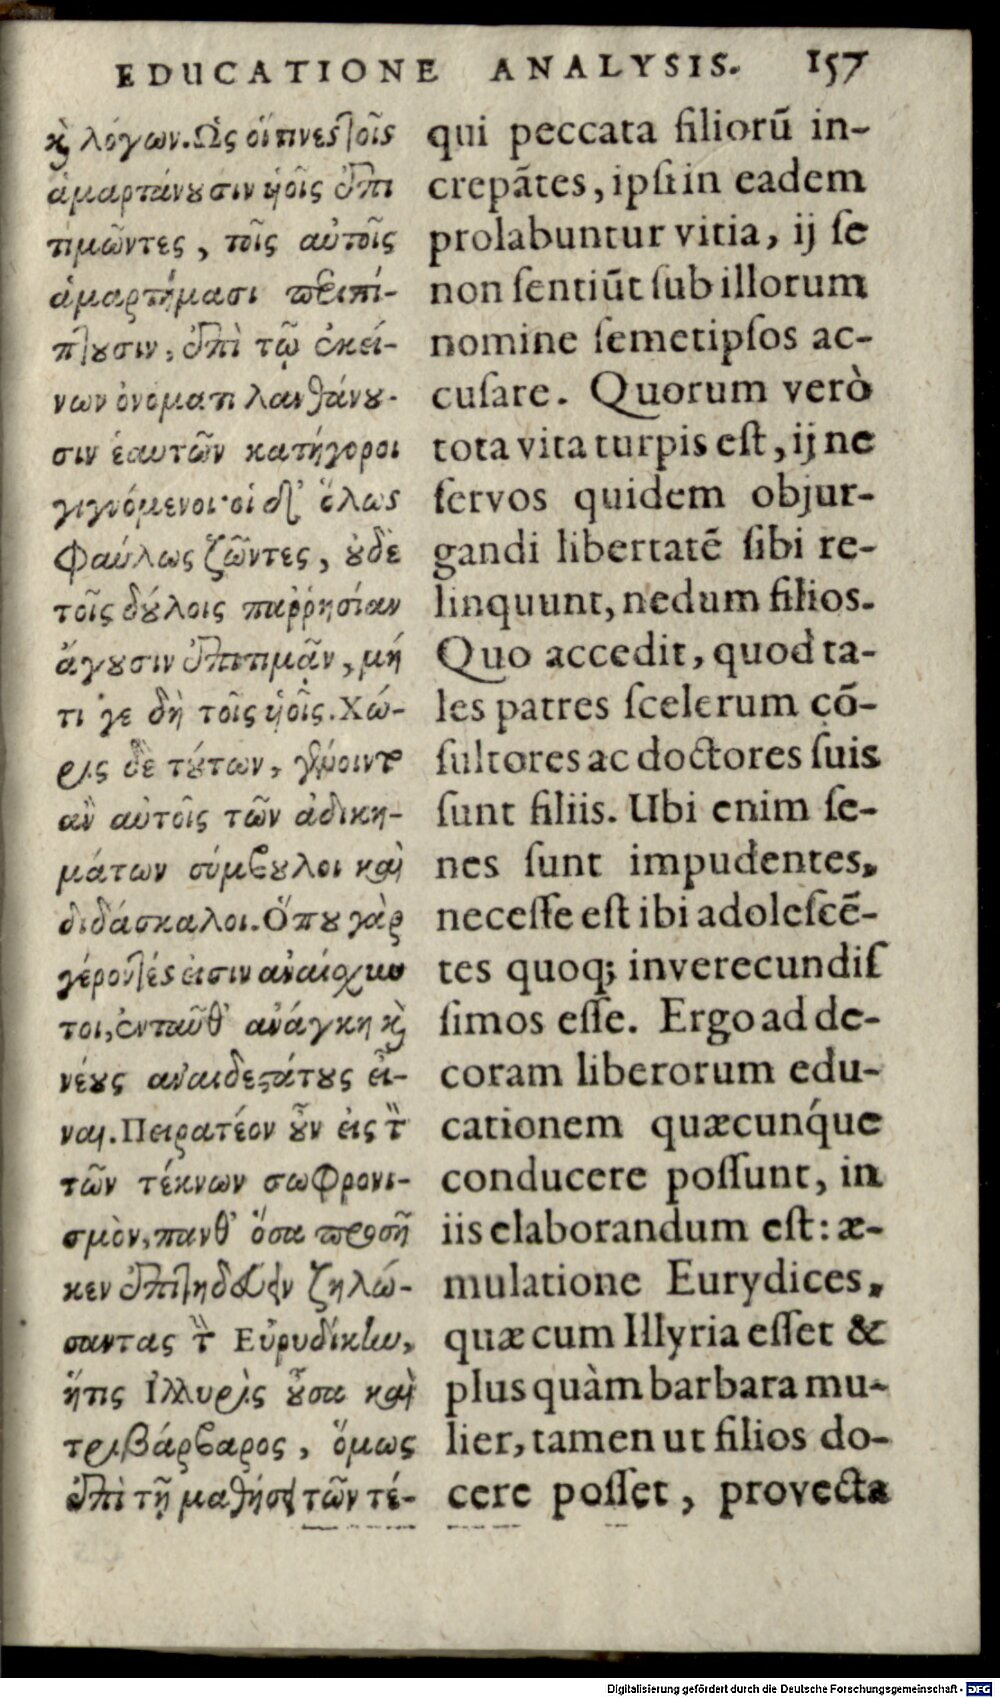 EDUCATIONE ANALYSIS. 157
κ̀ λόγων. Ως οἵτινες τοῖς
ἁμαρτάνουσιν υἱοῖς ἐπι
τιμῶντες, τοῖς αὐτοῖς
ἁμαρτήμασι περιπί-
πτουσιν, ἐπὶ τῷ ἐκεί-
νων ὀνόματι λανθάνου-
σιν ἑαυτῶν κατήγοροι
γιγνόμενοι· οἱ δ' ὅλως
Φαύλως ζῶντες, οὐδὲ
τοῖς δούλοις παῤῥησίαν
ἄγουσιν ἐπιτιμᾷν, μή
τι γε δὴ τοῖς υἱοῖς. Χώ-
ρις δὲ τούτων, γένοιντο
ἂν αὐτοῖς τῶν ἀδικη-
μάτων σύμβουλοι καὶ
διδάσκαλοι. Ὅπου γὰρ
γέροντές εἰσιν ἀναίσχυν
τοι, ἐνταῦθ' ἀνάγκη κ̀
νέους ἀναιδεστάτους εἶ-
ναι. Πειρατέον οὖν εἰς τ̀
τῶν τέκνων σωΦρονι-
σμὸν, πανθ' ὅσα προσῆ
κεν ἐπιτηδεύειν ζηλώ-
σαντας τ̀ Εὐρυδίκην,
ἥτις Ιλλυρὶς οὖσα καὶ
τριβάρβαρος, ὅμως
ἐπὶ τῇ μαθήσει τῶν τέ-
qui peccata filiorū in-
crepātes, ipsi in eadem
prolabuntur vitia, ij se
non sentiūt sub illorum
nomine semetipsos ac-
cusare. Quorum verò
tota vita turpis est, ij ne
servos quidem objur-
gandi libertatē sibi re-
linquunt, nedum filios.
Quo accedit, quod ta-
les patres scelerum cō-
sultores ac doctores suis
sunt filiis. Ubi enim se-
nes sunt impudentes,
necesse est ibi adolescē-
tes quoq; inverecundis
simos esse. Ergo ad de-
coram liberorum edu-
cationem quæcunq́ue
conducere possunt, in
iis elaborandum est: æ-
mulatione Eurydices,
quæ cum Illyria esset &
plus quàm barbara mu-
lier, tamen ut filios do-
cere posset, provecta
Digitalisierung gefördert durch die Deutsche Forschungsgemeinschaft - DFG